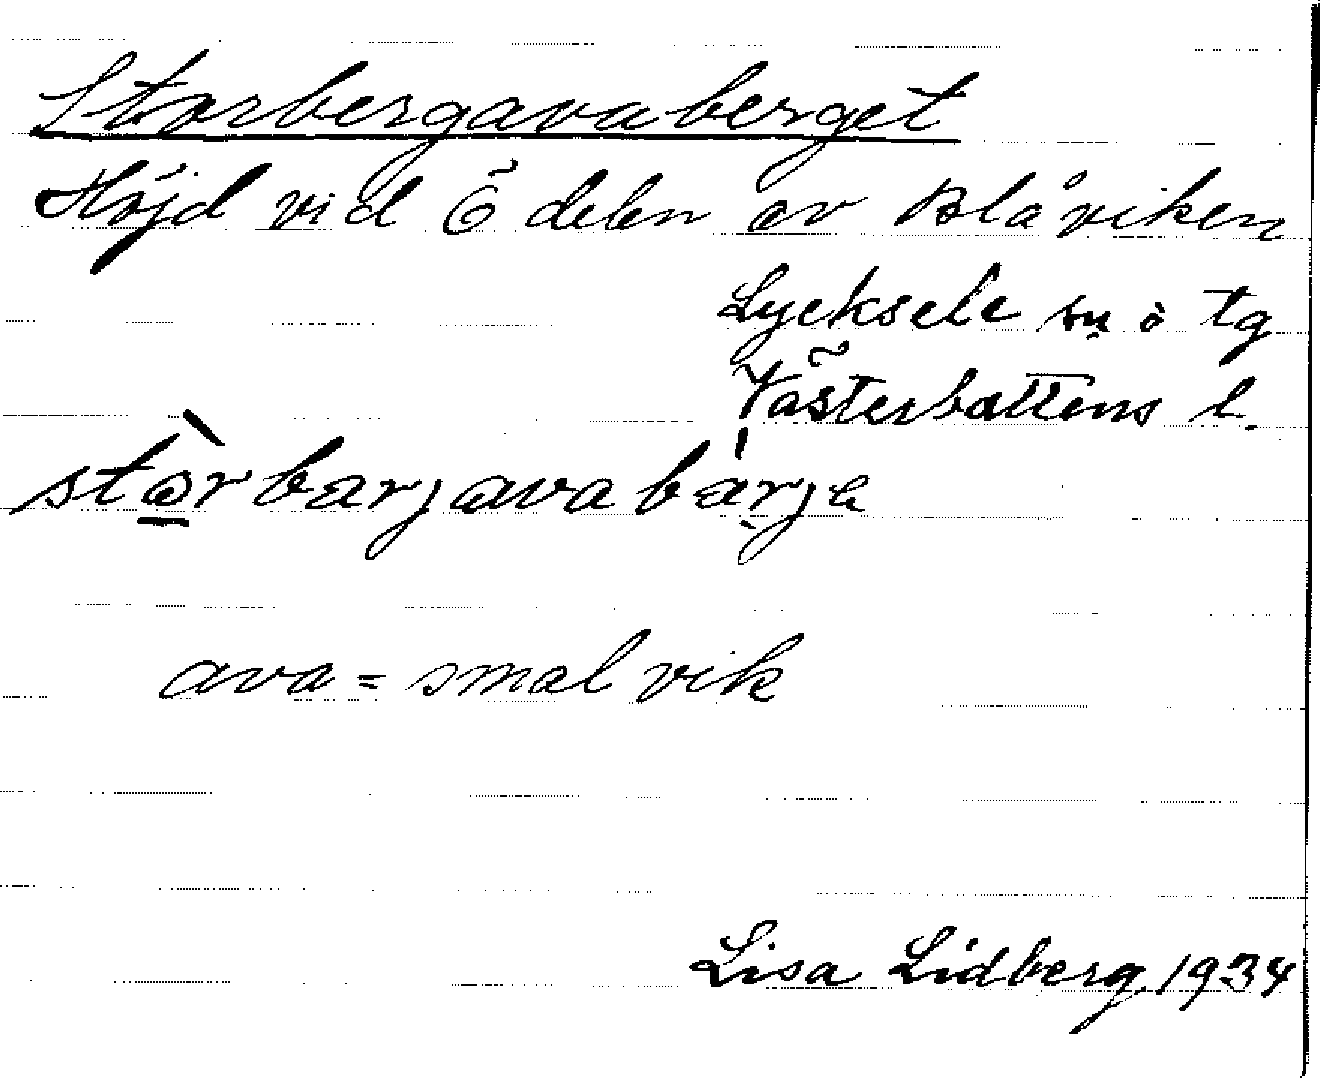 Storbergavaberget
Höjd vid Ö delen av Blåviken
Lycksele sn o tg
Västerbottens l.
stòrbarjavabárja
ava = smal vik
Lisa Lidberg 1934